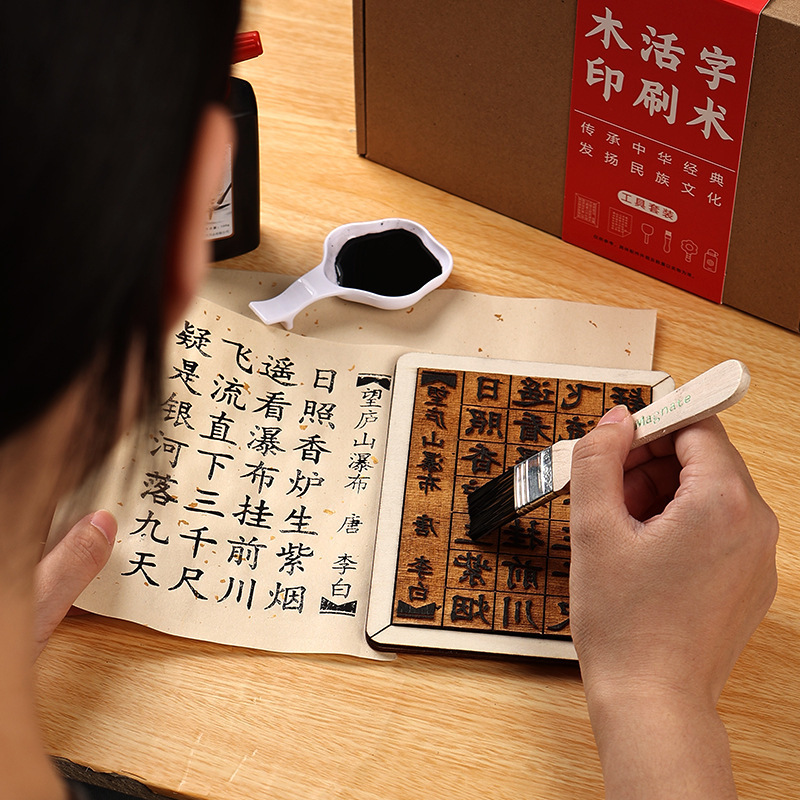 木活字
印刷术
传承中华经典
发扬民族文化
工具套装
望庐山瀑布 唐 李白
日照香炉生紫烟
遥看瀑布挂前川
飞流直下三千尺
疑是银河落九天
望庐山瀑布 唐 李白
日照香 紫烟
遥看 挂前川
飞
Magnate